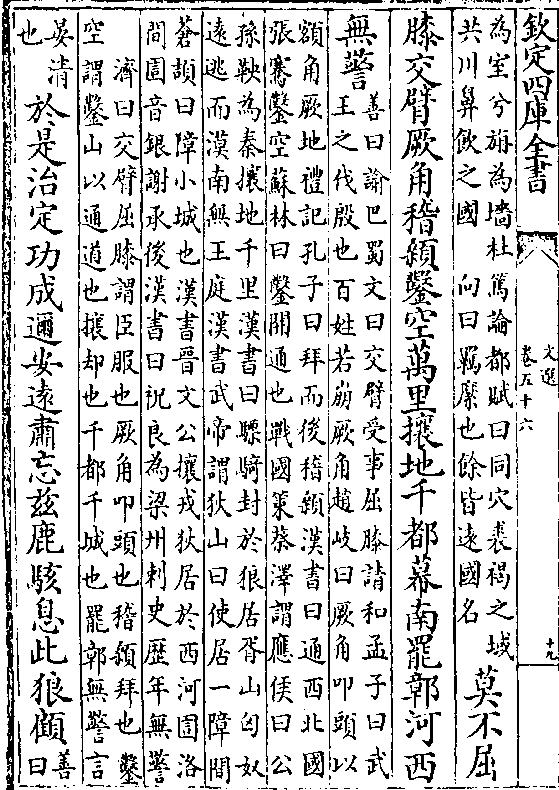 欽定四庫全書
文選
卷五十六
十九
為室兮旃為墻杜篤論都賦曰同穴裘褐之域
共川鼻飲之國　向曰羈縻也餘皆遠國名
莫不屈
膝交臂厥角稽顙鑿空萬里攘地千都幕南罷鄣河西
無警
善曰諭巴蜀文曰交臂受事屈膝請和孟子曰武
王之伐殷也百姓若崩厥角趙岐曰厥角叩頭以
額角厥地禮記孔子曰拜而後稽顙漢書曰通西北國
張騫鑿空蘇林曰鑿開通也戰國策蔡澤謂應侯曰公
孫鞅為秦攘地千里漢書曰驃騎封於狼居胥山匈奴
遠逃而漠南無王庭漢書武帝謂狄山曰使居一障間
蒼頡曰障小城也漢書晉文公攘戎狄居於西河圁洛
間圁音銀謝承後漢書曰祝良為梁州刺史歷年無警
濟曰交臂屈膝謂臣服也厥角叩頭也稽顙拜也鑿
空謂鑿山以通道也攘却也千都千城也罷鄣無警言
晏清
也
於是治定功成邇安遠肅忘玆鹿駭息此狼顧
善
曰